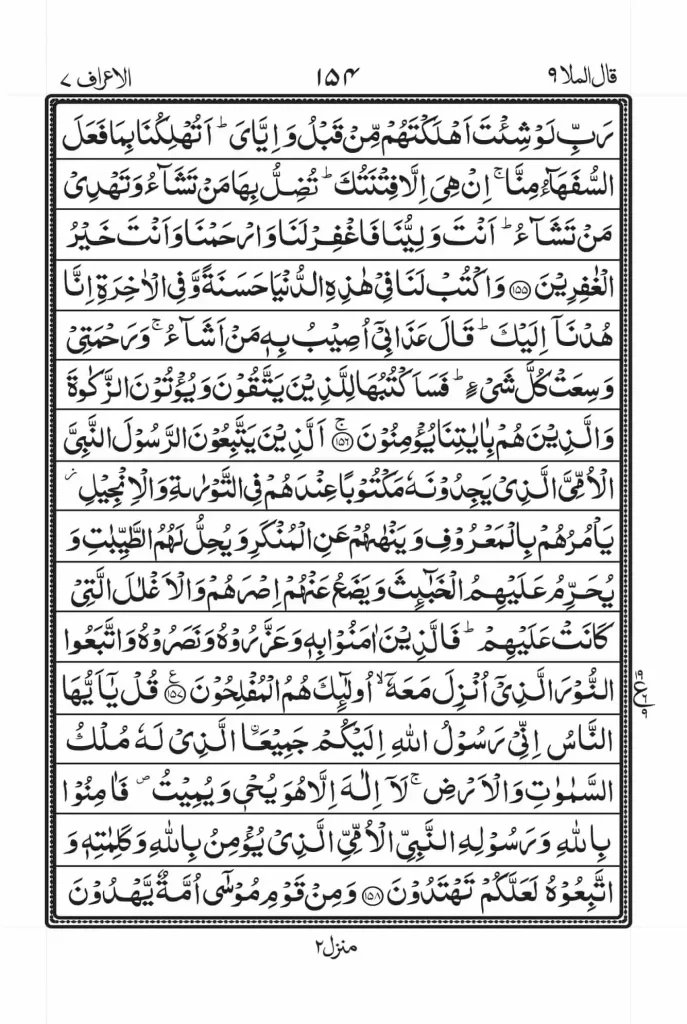 قال الملا ٩ ١٥٤ الاعراف ٧
رَبِّ لَوْ شِئْتَ اَهْلَكْتَهُمْ مِّنْ قَبْلُ وَاِيَّايَ ؕ اَتُهْلِكُنَا بِمَا فَعَلَ
السُّفَهَآءُ مِنَّا ۚ اِنْ هِيَ اِلَّا فِتْنَتُكَ ؕ تُضِلُّ بِهَا مَنْ تَشَآءُ وَتَهْدِيْ
مَنْ تَشَآءُ ؕ اَنْتَ وَلِيُّنَا فَاغْفِرْ لَنَا وَارْحَمْنَا وَاَنْتَ خَيْرُ
الْغٰفِرِيْنَ ﴿١٥٥﴾ وَاكْتُبْ لَنَا فِيْ هٰذِهِ الدُّنْيَا حَسَنَةً وَّفِي الْاٰخِرَةِ اِنَّا
هُدْنَاۤ اِلَيْكَ ؕ قَالَ عَذَابِيْۤ اُصِيْبُ بِهٖ مَنْ اَشَآءُ ۚ وَرَحْمَتِيْ
وَسِعَتْ كُلَّ شَيْءٍ ؕ فَسَاَكْتُبُهَا لِلَّذِيْنَ يَتَّقُوْنَ وَيُؤْتُوْنَ الزَّكٰوةَ
وَالَّذِيْنَ هُمْ بِاٰيٰتِنَا يُؤْمِنُوْنَ ﴿١٥٦﴾ ۚ اَلَّذِيْنَ يَتَّبِعُوْنَ الرَّسُوْلَ النَّبِيَّ
الْاُمِّيَّ الَّذِيْ يَجِدُوْنَهٗ مَكْتُوْبًا عِنْدَهُمْ فِي التَّوْرٰىةِ وَالْاِنْجِيْلِ ؗ
يَاْمُرُهُمْ بِالْمَعْرُوْفِ وَيَنْهٰىهُمْ عَنِ الْمُنْكَرِ وَيُحِلُّ لَهُمُ الطَّيِّبٰتِ وَ
يُحَرِّمُ عَلَيْهِمُ الْخَبٰٓئِثَ وَيَضَعُ عَنْهُمْ اِصْرَهُمْ وَالْاَغْلٰلَ الَّتِيْ
كَانَتْ عَلَيْهِمْ ؕ فَالَّذِيْنَ اٰمَنُوْا بِهٖ وَعَزَّرُوْهُ وَنَصَرُوْهُ وَاتَّبَعُوا
النُّوْرَ الَّذِيْۤ اُنْزِلَ مَعَهٗۤ ۙ اُولٰٓئِكَ هُمُ الْمُفْلِحُوْنَ ﴿١٥٧﴾ ع قُلْ يٰۤاَيُّهَا
النَّاسُ اِنِّيْ رَسُوْلُ اللهِ اِلَيْكُمْ جَمِيْعَا الَّذِيْ لَهٗ مُلْكُ
السَّمٰوٰتِ وَالْاَرْضِ ۚ لَاۤ اِلٰهَ اِلَّا هُوَ يُحْيٖ وَيُمِيْتُ ۪ فَاٰمِنُوْا
بِاللهِ وَرَسُوْلِهِ النَّبِيِّ الْاُمِّيِّ الَّذِيْ يُؤْمِنُ بِاللهِ وَكَلِمٰتِهٖ وَ
اتَّبِعُوْهُ لَعَلَّكُمْ تَهْتَدُوْنَ ﴿١٥٨﴾ وَمِنْ قَوْمِ مُوْسٰٓى اُمَّةٌ يَّهْدُوْنَ
منزل ٢